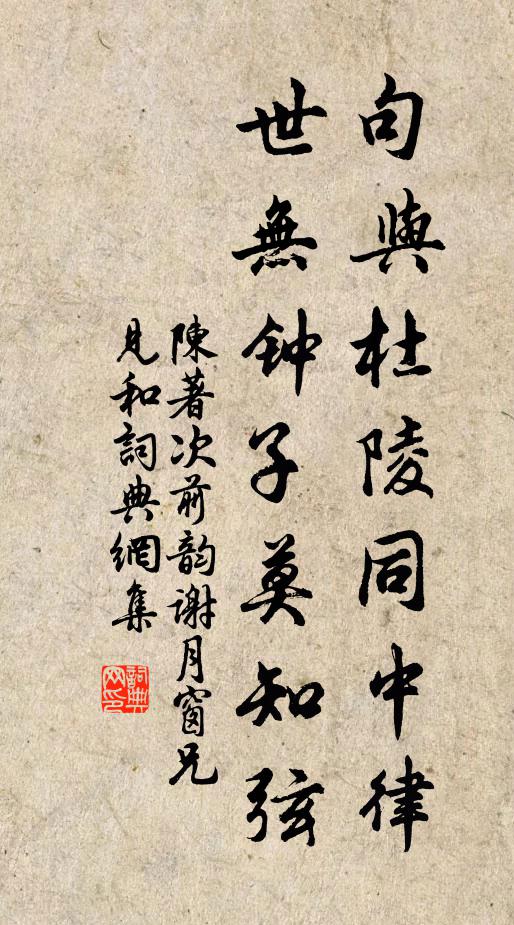 句與杜陵同中律
世無钟子莫知弦
陳著次前韵谢月窗兄
見和詞典網集
詞典
网印